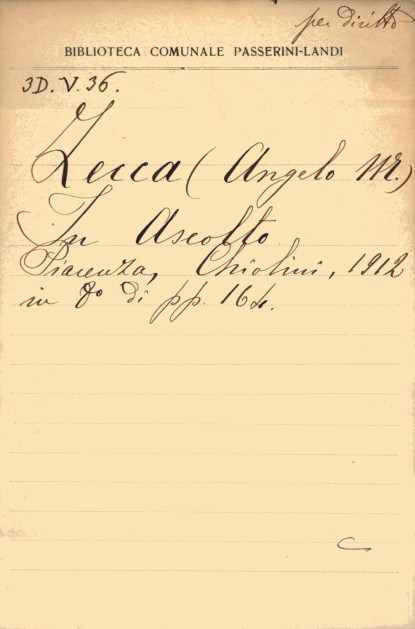 per diritto
BIBLIOTECA COMUNALE PASSERINI-LANDI
3D. V. 36.
Zecca (Angelo M.)
In Ascolto
Piacenza, Chiolini, 1912
in 8º di pp. 164.
C